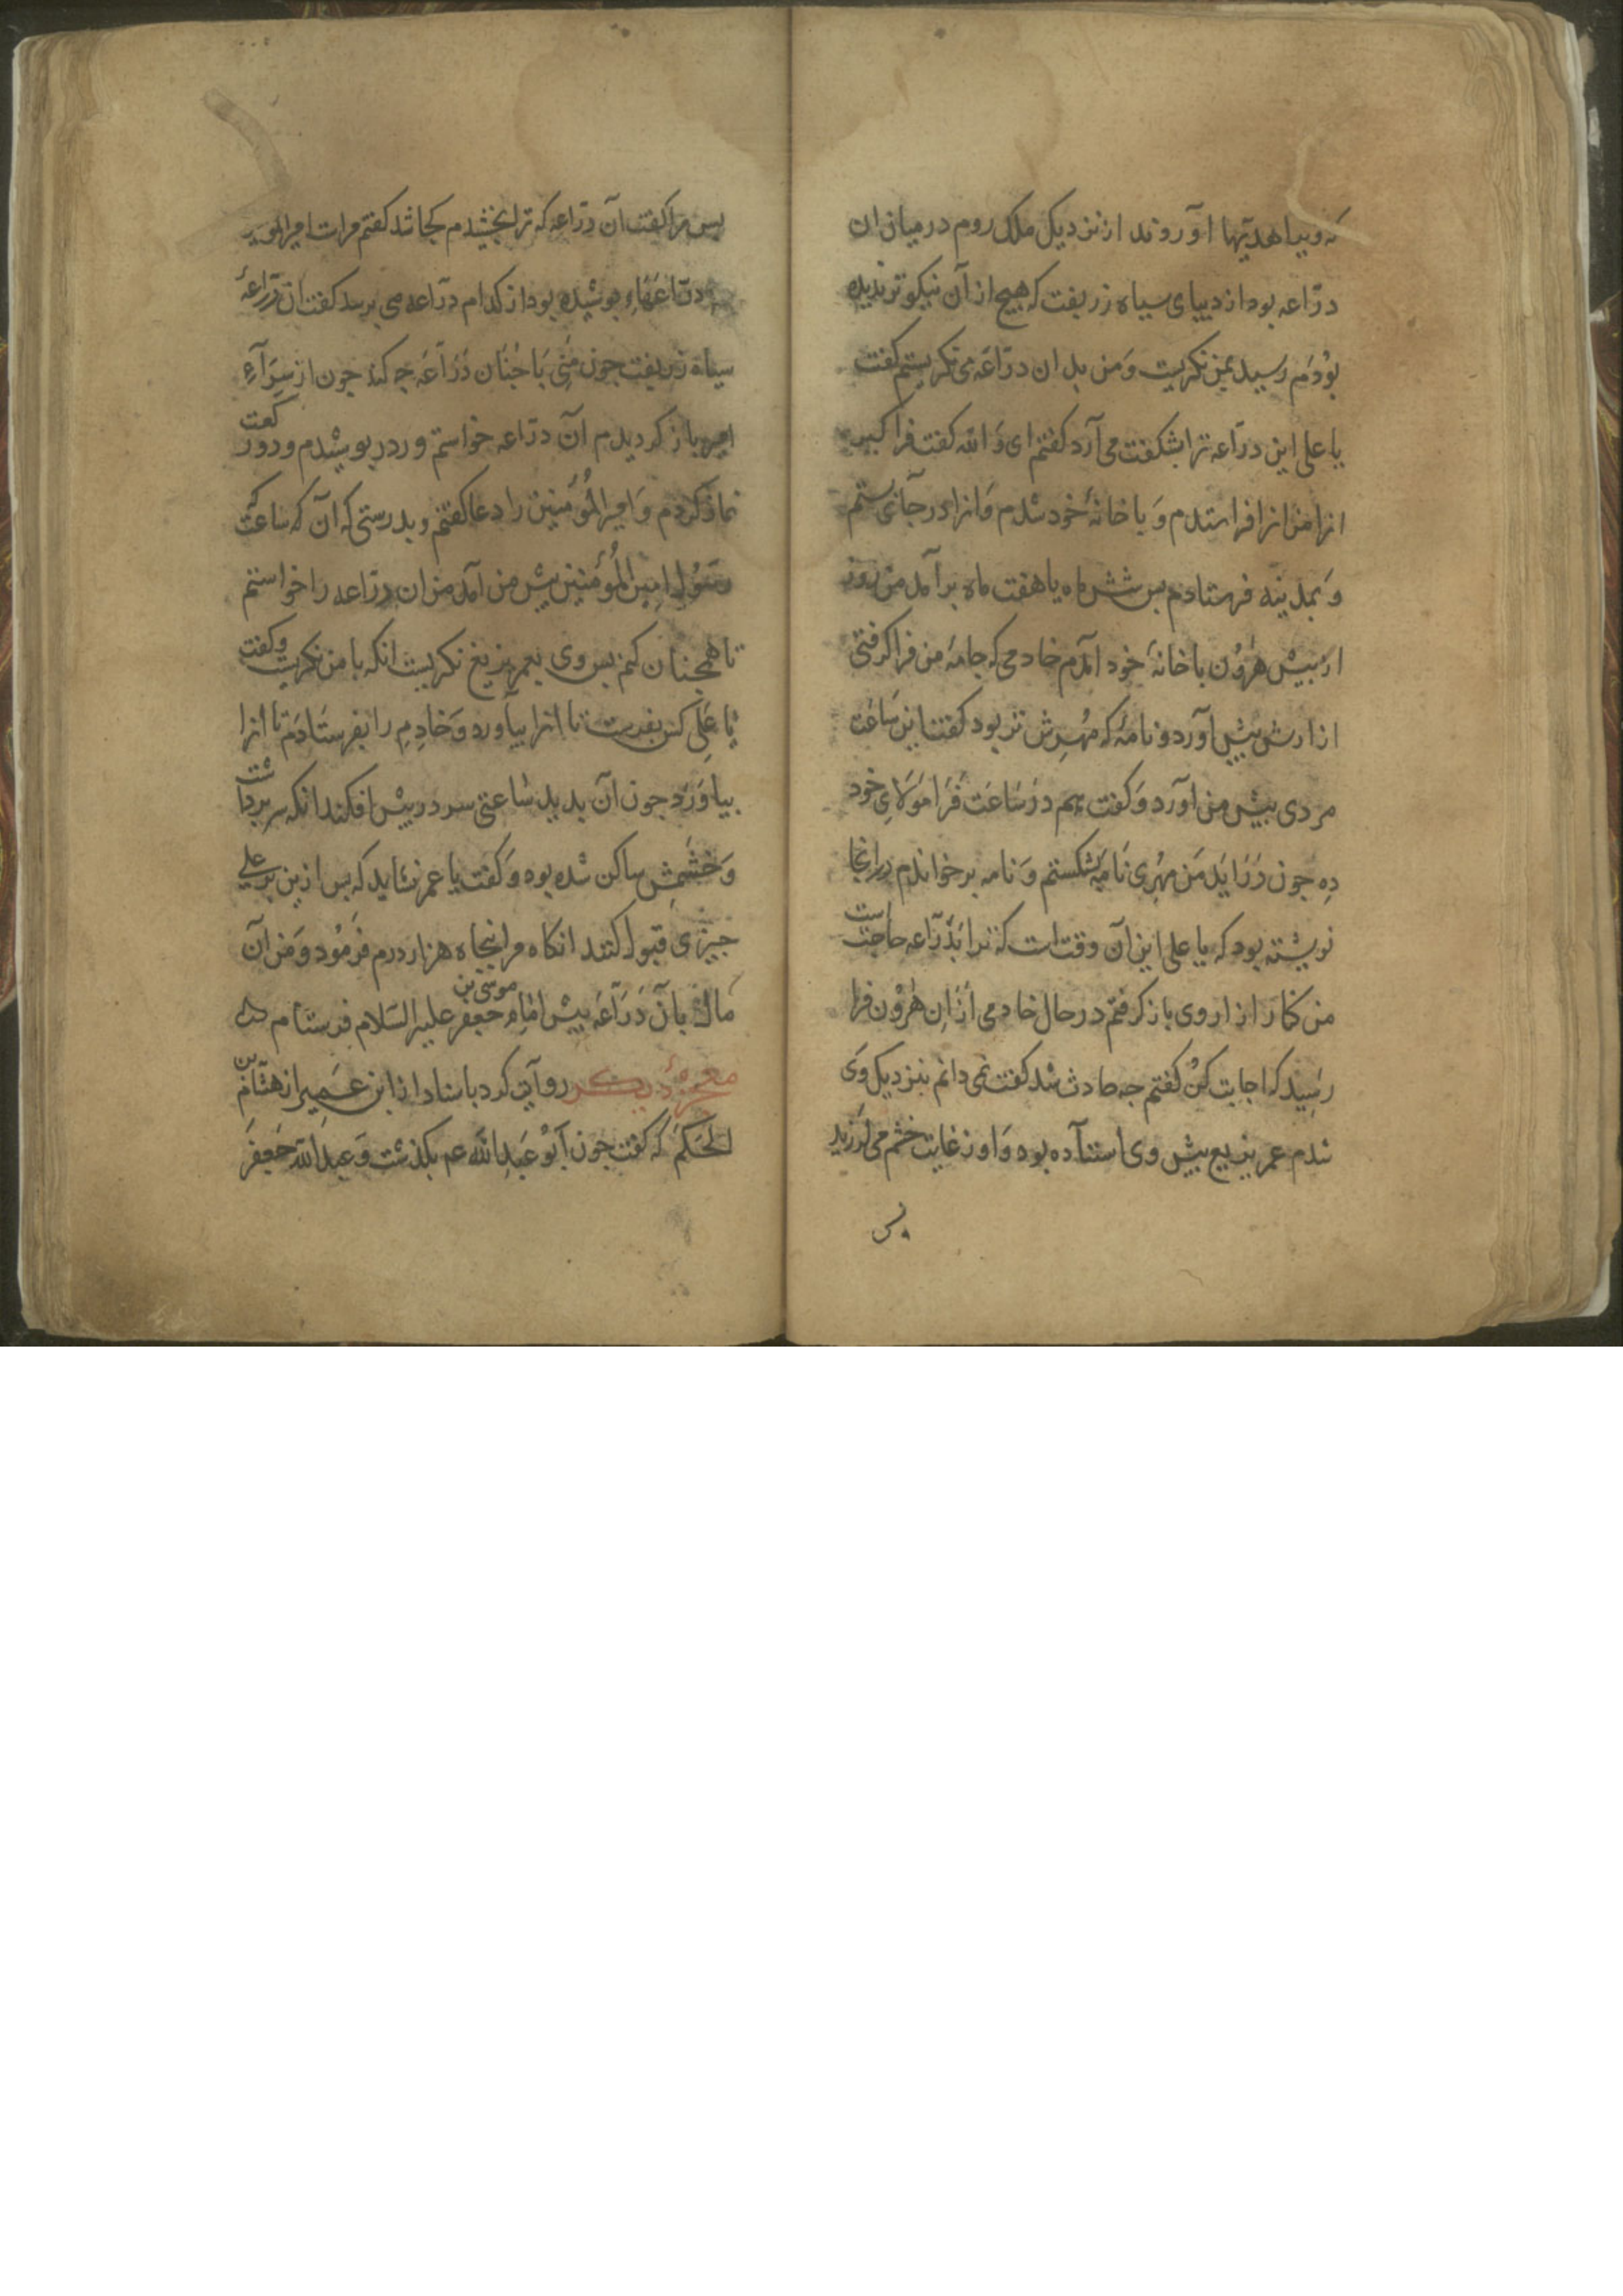 که ویرا هدیتها آوردند از نزدیک ملک روم در میان ان
درّاعه بود از دیبای سیاه زربفت که هیچ از آن نیکوتر ندیده
بودم رسید بمن نکریست و من بدان درّاعه می نکریستم کفت
یا علی این درّاعه ترا بشکفت می آرد کفتم ای والله کفت فرا کیر
انرا من انرا فراستدم و با خانهٔ خود شدم وانرا در جآی بستم
و بمدینه فرستادم بس شش ماه یا هفت ماه برآمد من روز
از بیش هرون با خانهٔ خود آمدم خادمی که جامهٔ من فراکرفتی
ازارش بیش آورد و نامهٔ که مهرش تر بود کفت این ساعت
مردی بیش من آورد و کفت هم در ساعت فرا مولای خود
ده جون درآید من مهری نامه بشکستم و نامه برخواندم درانجا
نوشته بود که یا علی این آن وقت است که ترا بدرّاعه حاجت است
من کنار ازار وی باز کرفتم در حال خادمی ازان هرون فرا
رسید که اجابت کن کفتم جه حادث شد کفت نمی دانم بنزدیک وی
شدم عمر بزیع بیش وی استآده بود و او از غایت خشم می لرزید
بس
بس مرا کفت آن درّاعه که ترا بخشیدم کجا شد کفتم مرا امیرالمو
درّاعهاء بوشیده بود از کدام درّاعه می برسد کفت ان درّاعهٔ
سیاه زربفت جون منی با جنان درّاعه جه کند جون از سرآء
امیر باز کردیدم آن درّاعه خواستم و در بوشیدم و دو رکعت
نماز کردم و امیرالمؤمنین را دعا کفتم و بدرستی که آن که ساعت
رسول امیرالمؤمنین بیش من آمد من ان درّاعه را خواستم
تا همجنان کنم بس وی بعمر بزیع نکریست انکه با من نکریست و کفت
یا علی کس بفرست تا انرا بیآورد و خادم را بفرستادم تا انرا
بیاورد جون آن بدید ساعتی سر در بیش افکند انکه سر برداشت
و خشمش ساکن شده بود و کفت یا عمر نشاید که بس ازین بر علی
جیزی قبول کنند انکاه مرا بنجاه هزار درم فرمود و من آن
مال با آن درّاعه بیش امام موسی بن جعفر علیه السلام فرستادم
معجزهٔ دیکر روآیت کرد باسناد از ابن عمیر از هشام بن
الحکم که کفت جون ابو عبدالله عم بکذشت و عبدالله جعفر